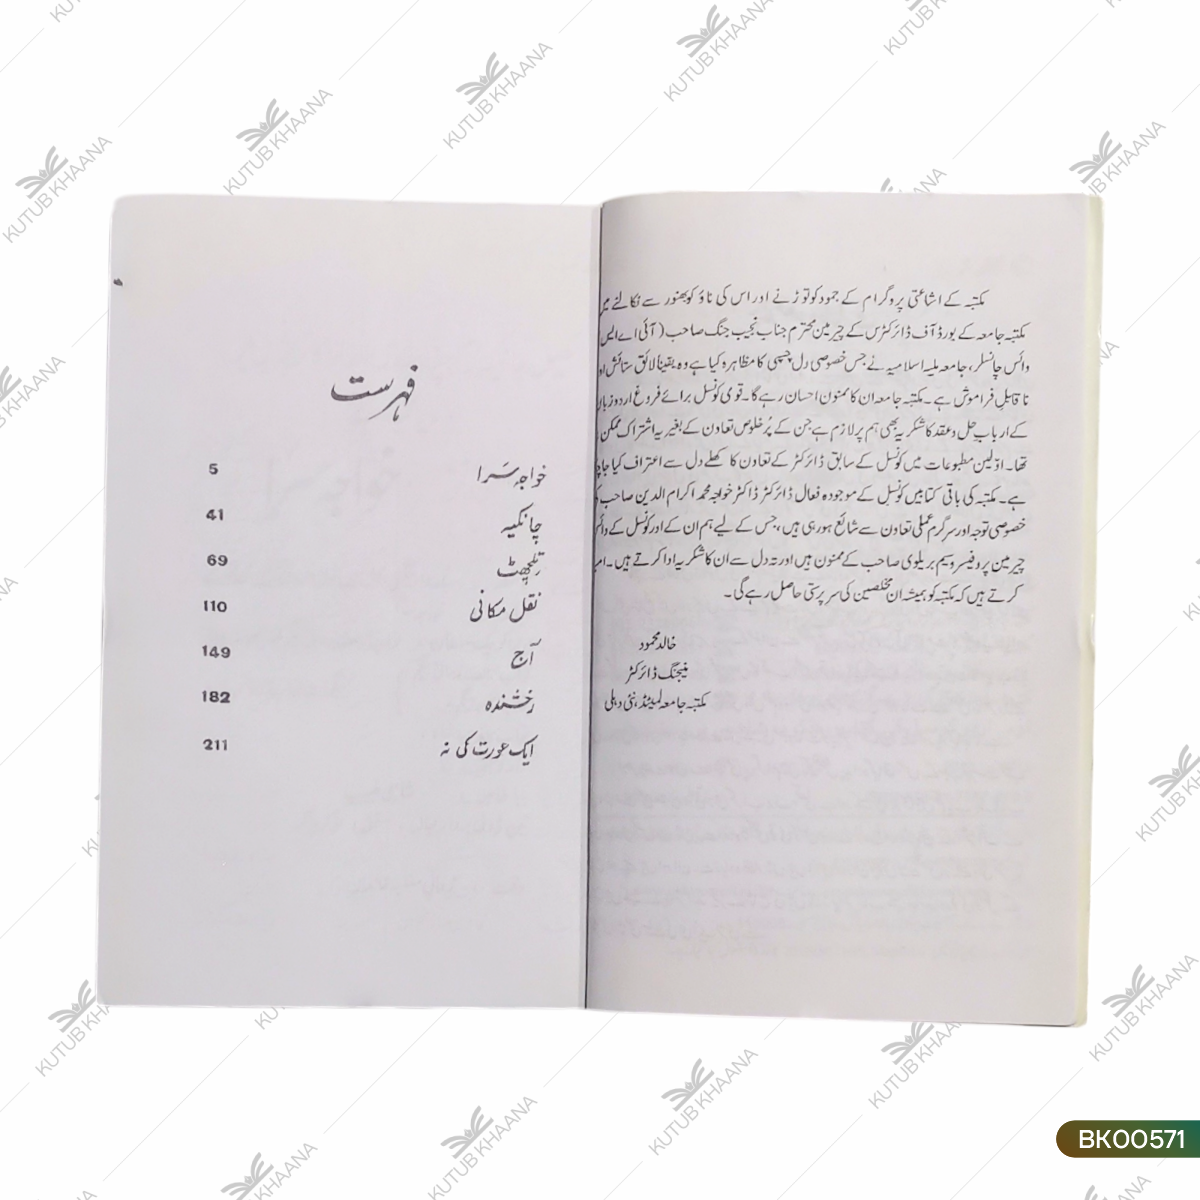 مکتبہ کے اشاعتی پروگرام کے جمود کو توڑنے اور اس کی ناؤ کو بھنور سے نکالنے میں
مکتبہ جامعہ کے بورڈ آف ڈائرکٹرس کے چیرمین محترم جناب نجیب جنگ صاحب (آئی اے ایس
وائس چانسلر، جامعہ ملیہ اسلامیہ نے جس خصوصی دل چسپی کا مظاہرہ کیا ہے وہ یقیناً لائق ستائش او
ناقابلِ فراموش ہے۔ مکتبہ جامعہ ان کا ممنون احسان رہے گا۔ قومی کونسل برائے فروغ اردو زبان
کے ارباب حل و عقد کا شکریہ بھی ہم پر لازم ہے جن کے پُرخلوص تعاون کے بغیر یہ اشتراک ممکن
تھا۔ اوّلین مطبوعات میں کونسل کے سابق ڈائرکٹر کے تعاون کا کھلے دل سے اعتراف کیا جا
ہے۔ مکتبہ کی باقی کتابیں کونسل کے موجودہ فعال ڈائرکٹر ڈاکٹر خواجہ محمد اکرام الدین صاحب
خصوصی توجہ اور سرگرم عملی تعاون سے شائع ہو رہی ہیں، جس کے لیے ہم ان کے اور کونسل کے وائس
چیرمین پروفیسر وسیم بریلوی صاحب کے ممنون ہیں اور تہ دل سے ان کا شکریہ ادا کرتے ہیں۔ امی
کرتے ہیں کہ مکتبہ کو ہمیشہ ان مخلصین کی سرپرستی حاصل رہے گی۔
خالد محمود
منیجنگ ڈائرکٹر
مکتبہ جامعہ لمیٹڈ، نئی دہلی
فہرست
خواجہ سَرا 5
چانکیہ 41
تلچھٹ 69
نقل مکانی 110
آج 149
رخشندہ 182
ایک عورت کی نہ 211
KUTUB KHAANA
BK00571